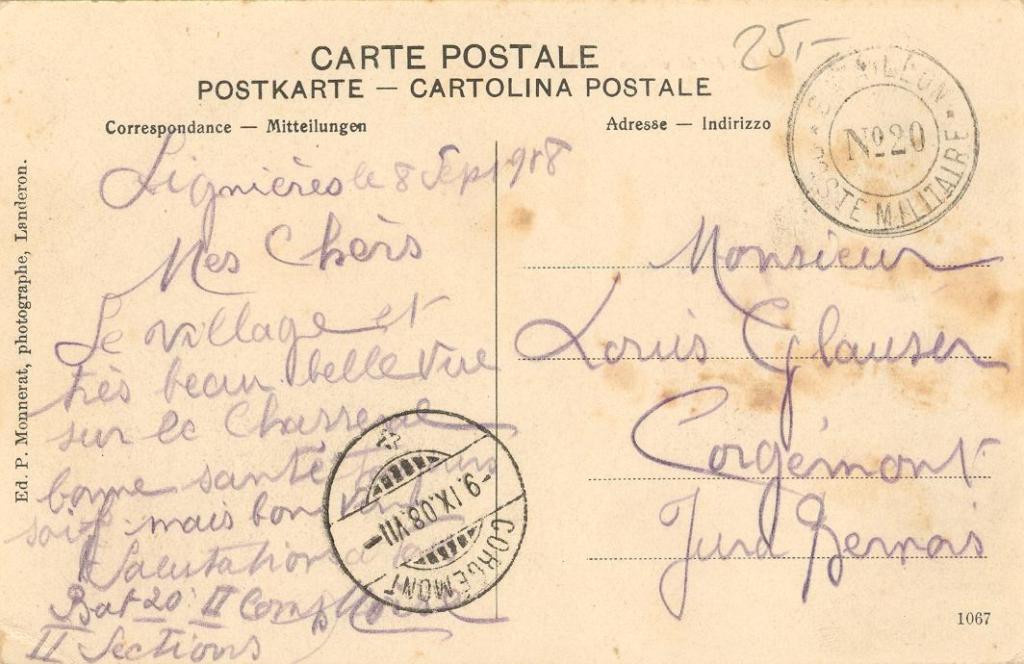 CARTE POSTALE
POSTKARTE — CARTOLINA POSTALE
Correspondance — Mitteilungen
Adresse — Indirizzo
25,-
BATAILLON
No 20
POSTE MILITAIRE
Lignières le 8 Sept 1908
Mes Chers
Le village et
très beau belle vue
sur le Chasseral
bonne santé toujours
soif mais bon
Salutation
Bat 20 II Comp
II Sections
Monsieur
Louis Glauser
Corgémont
Jura Bernois
CORGÉMONT
-9.IX.08.VII-
Ed. P. Monnerat, photographe, Landeron.
1067